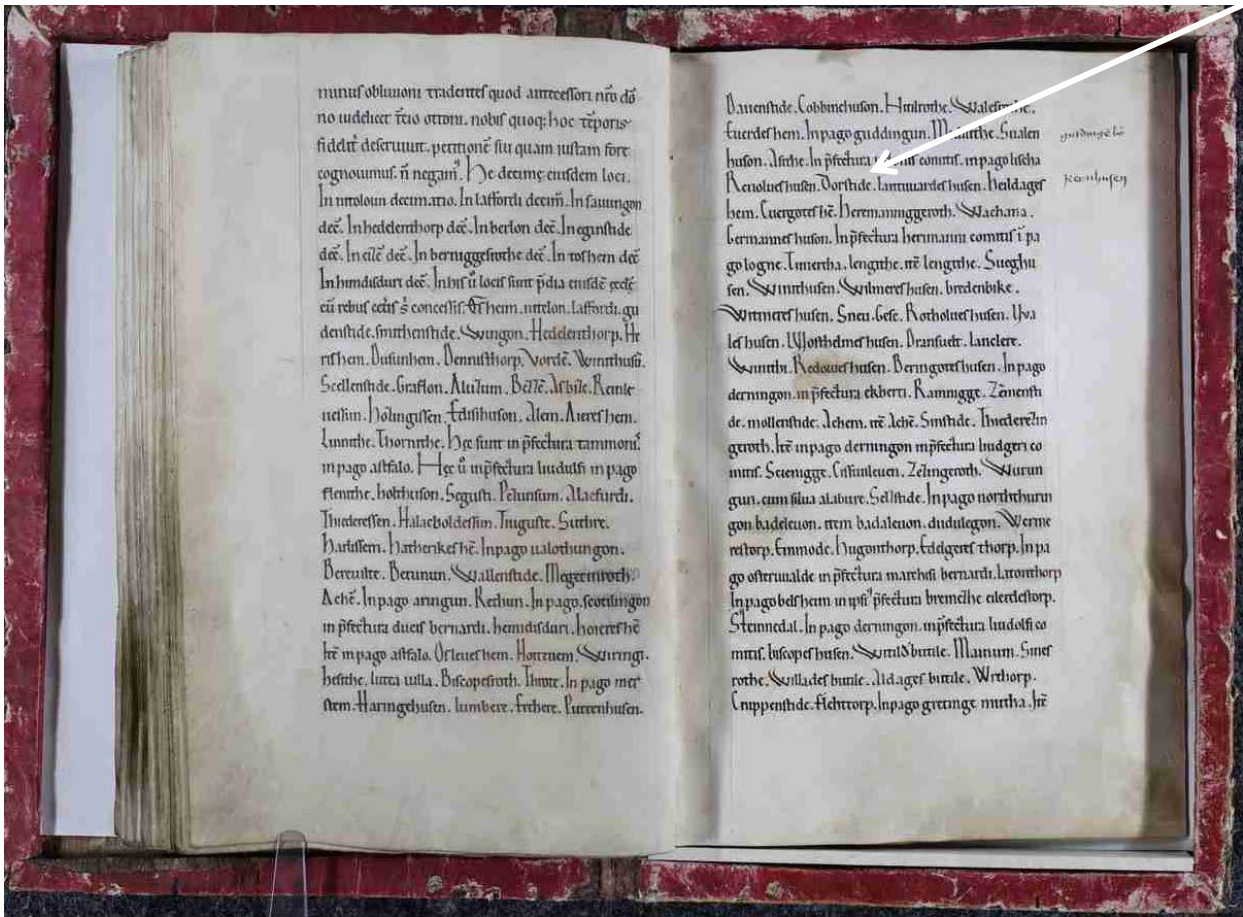 minus oblivioni tradentes quod antecessori nr̄o dō
no uidelicet t̄cio ottoni. nobis quoq; hoc tēporis
fidelit̄ deseruiuit. petitionē sui quam iustam fore
cognouimus. n̄ negam᷒. He decimę eiusdem loci.
In nitoloun decimatio. In laffordi decim̄. In sauuingon
dec̄. In hedelenthorp dec̄. In berlon dec̄. In eginstide
dec̄. In cilē dec̄. In berniggesrothe dec̄. In tossem dec̄
In himdisdurt dec̄. In his ū locis sunt p̄dia eiusdē ęcclę
cū rebus cet̄is s̄ concessis. hem. nittelon. laffordi. gu
denstide. smithenstide. Wungon. Heddenthorp. He
rishem. Dusunhem. Dennisthorp. Vordē. Winnthusū.
Scellenstide. Graflon. Aluitum. Asbike. Remle
uessun. Holingissen. Edisihuson. Alem. Aieres hem.
Lunnithe. Thornithe. Hęc sunt in p̄fectura tammoni᷒.
in pago astfalo. Hęc ū in p̄fectura liudulfi in pago
flenithe. holthuson. Segusti. Petunsum. Alacfurdi.
Thiederessen. Halacboldessun. Tuiguste. Suthre.
Hardissem. Hathenkes hē. In pago ualothungon.
Bereuiste. Berunun. Wallenstide. Megeeinroth.
Achē. In pago aringun. Rethun. In pago scotilingon
in p̄fectura ducis bernardi. hemidisduri. hoieres hē
Itē in pago astfalo. Osleues hem. Hottenem. Wiringi.
hesithe. lutta uilla. Biscopesroth. Throte. In pago mer
stem. Haringehusen. lumbere. Erthere. Puttenhusen.
Dauenstide. Cobbinchuson. Hinlrothe. Walesrothe.
Euerdes hem. In pago guddingun. Sualen
huson. Asithe. In p̄fectura comitis. in pago lischa
Renolues husen. Dorstide. lantuuardes husen. heildages
hem. Cuergotes hē. Heremanniggeroth. Wachana.
Germannes huson. In p̄fectura herimanni comitis ī pa
go logne. Timertha. lengithe. itē lengithe. Sueghu
sen. Winnthusen. Wilmeres husen. bredenbike.
Witmeres husen. Sneu. Gese. Rotholues husen. Uua
les husen. Wosthelmes husen. Dransuelt. lanclere.
Winithi. Redowies husen. Beringotes husen. In pago
derningon. in p̄fectura ekberti. Rammigge. Zēmensti
de. mollenstide. Achem. itē Achē. Sinstide. Thiederezin
geroth. Itē in pago derningon in p̄fectura liudgeri co
mitis. Scenigge. Cissunleuen. Zelingeroth. Wurun
gun. cum silua alabure. Sellstide. In pago norththurin
gon badeleuon. item badaleuon. dudulegon. Werme
restorp. Emmode. Hugonthorp. Edelgeres thorp. In pa
go osteruualde in p̄fectura marchisi bernardi. Litonthorp
In pago belsheim in ipsi᷒ p̄fectura bremethe eilerdestorp.
Steinnedal. In pago derningon. in p̄fectura liudolfi co
mitis. biscopes husen. buttle. Mainum. Sines
rothe. Willades buttle. Aldages buttle. Wrthorp.
Cnippenstide. Flehttorp. In pago gretinge mutha. Itē